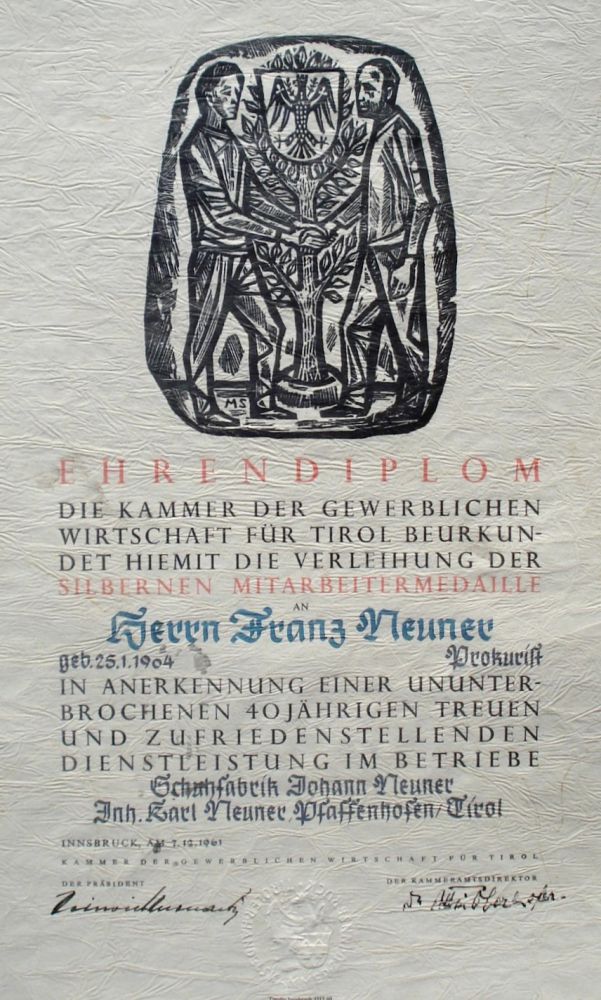 MS
EHRENDIPLOM
DIE KAMMER DER GEWERBLICHEN
WIRTSCHAFT FÜR TIROL BEURKUN-
DET HIEMIT DIE VERLEIHUNG DER
SILBERNEN MITARBEITERMEDAILLE
AN
Herrn Franz Neuner
geb. 25.1.1904 Prokurist
IN ANERKENNUNG EINER UNUNTER-
BROCHENEN 40JÄHRIGEN TREUEN
UND ZUFRIEDENSTELLENDEN
DIENSTLEISTUNG IM BETRIEBE
Schuhfabrik Johann Neuner
Inh. Karl Neuner, Pfaffenhofen/Tirol
INNSBRUCK, AM 7.12.1961
KAMMER DER GEWERBLICHEN WIRTSCHAFT FÜR TIROL
DER PRÄSIDENT DER KAMMERAMTSDIREKTOR